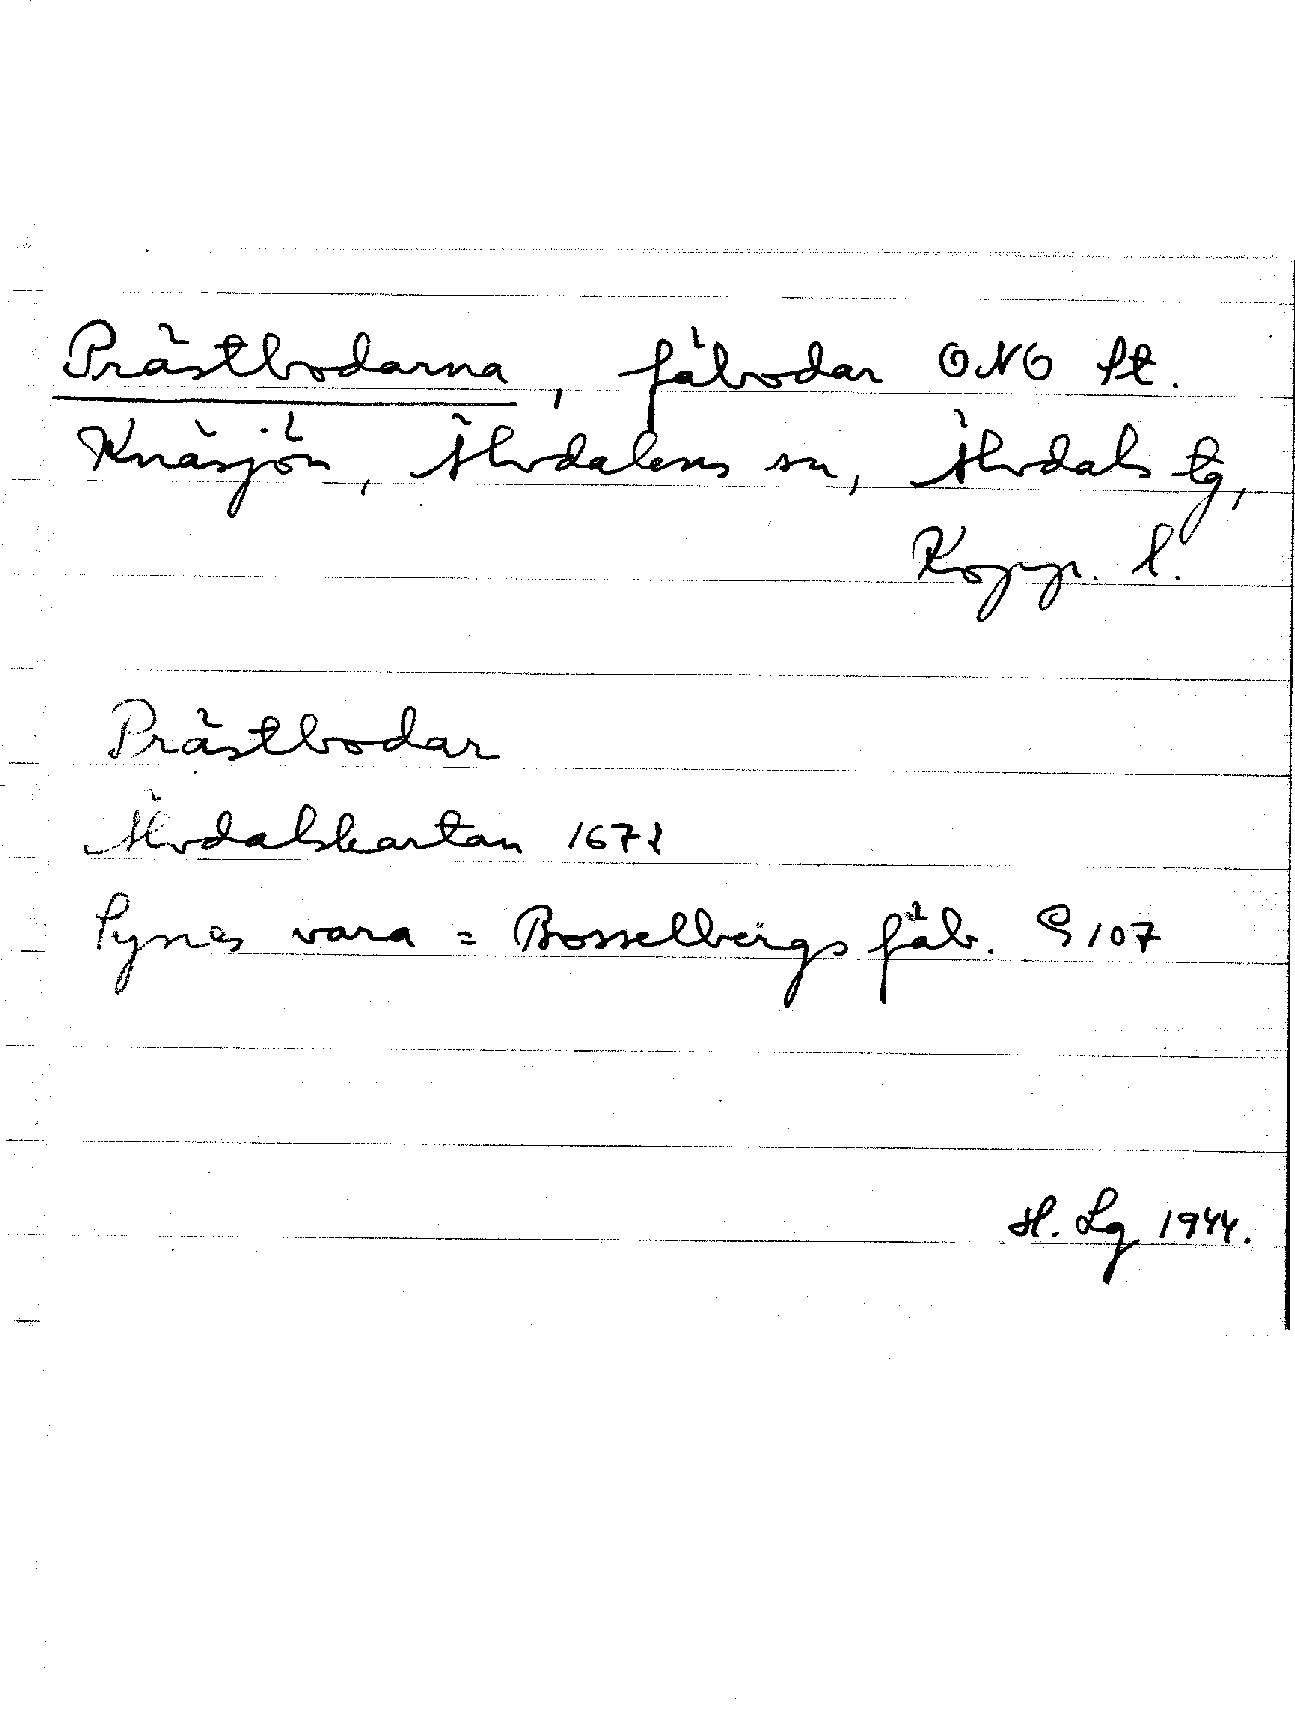 Prästbodarna, fäbodar ONO St.
Knäsjön, Älvdalens sn, Älvdals tg,
Kopp. l.
Prästbodar
Älvdalskartan 1671
Synes vara = Bosselbergs fäb. G 107
H. Lg 1944.